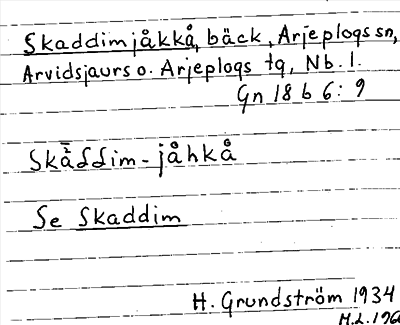 Skaddimjåkkå, bäck, Arjeplogs sn,
Arvidsjaurs o. Arjeplogs tg, Nb. l.
Gn 18 b 6: 9
Skā̀ddim-jåhkå
Se Skaddim
H. Grundström 1934